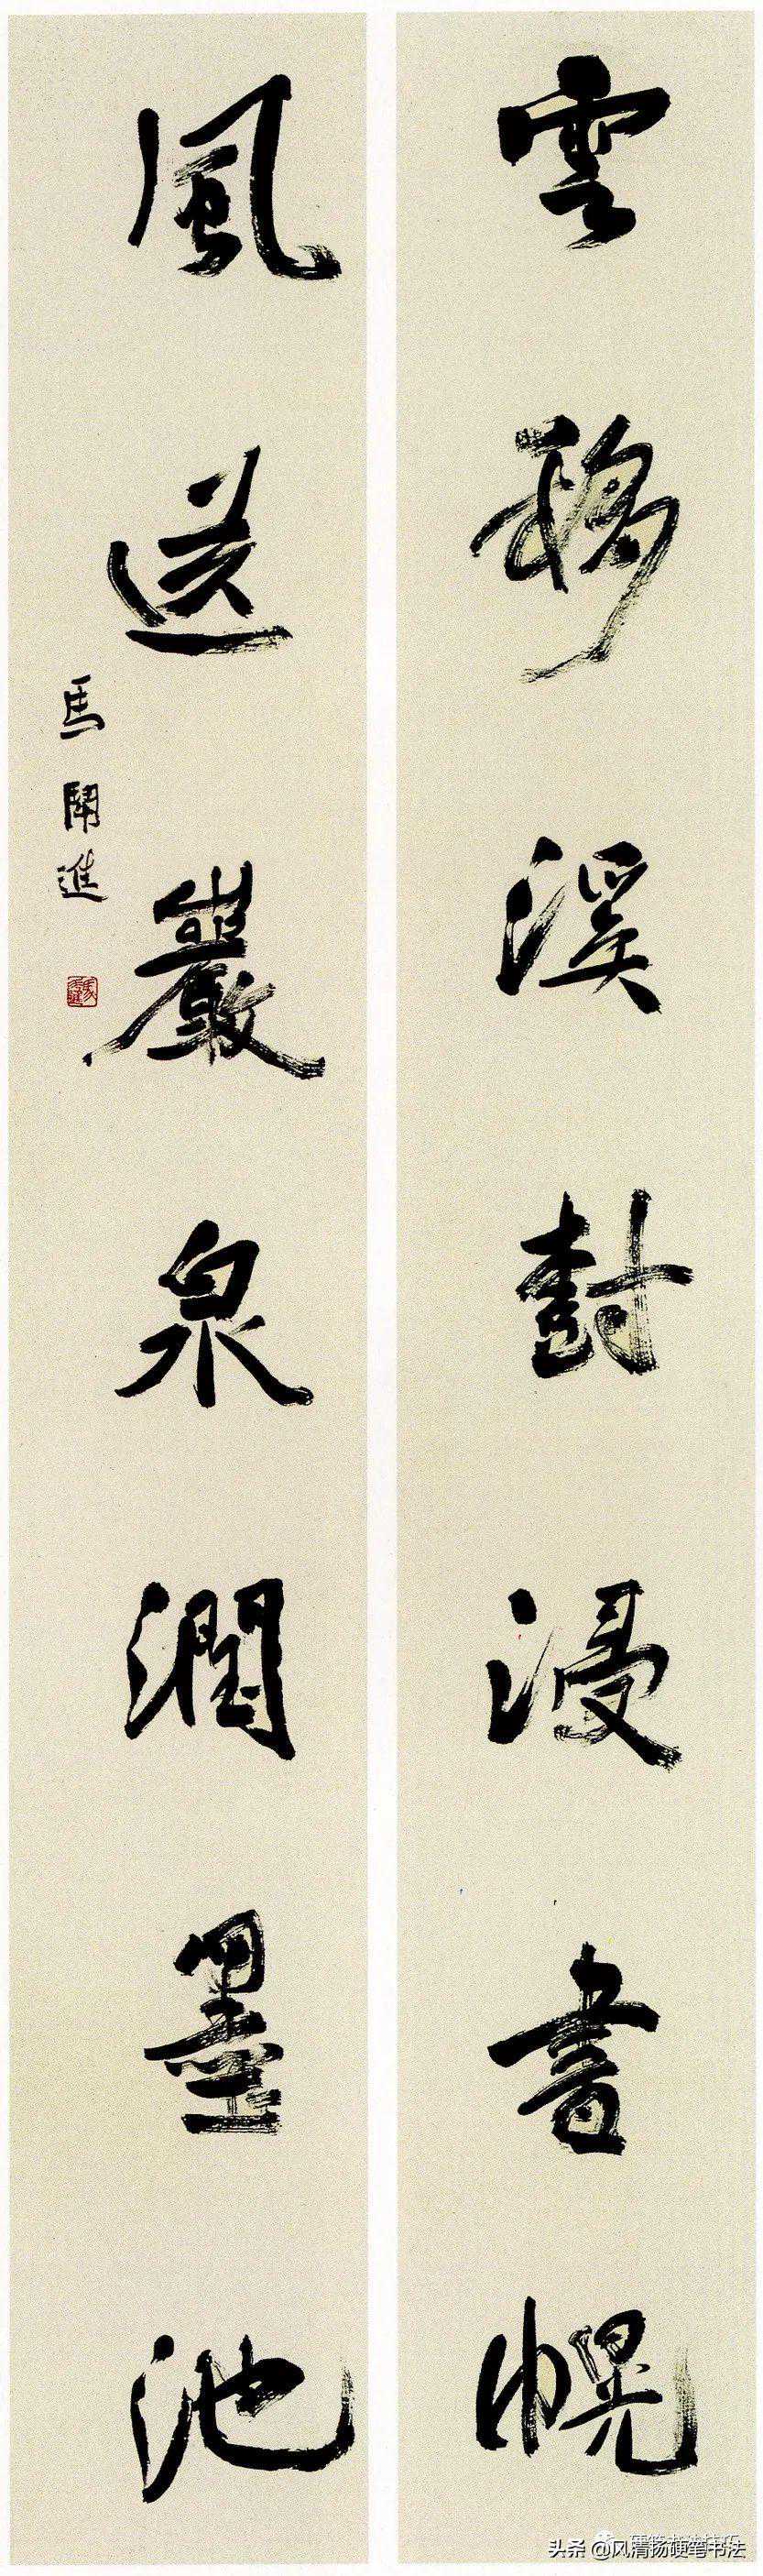 雲移溪樹浸書幌
風送巖泉潤墨池
馬開進
头条 @风清扬硬笔书法